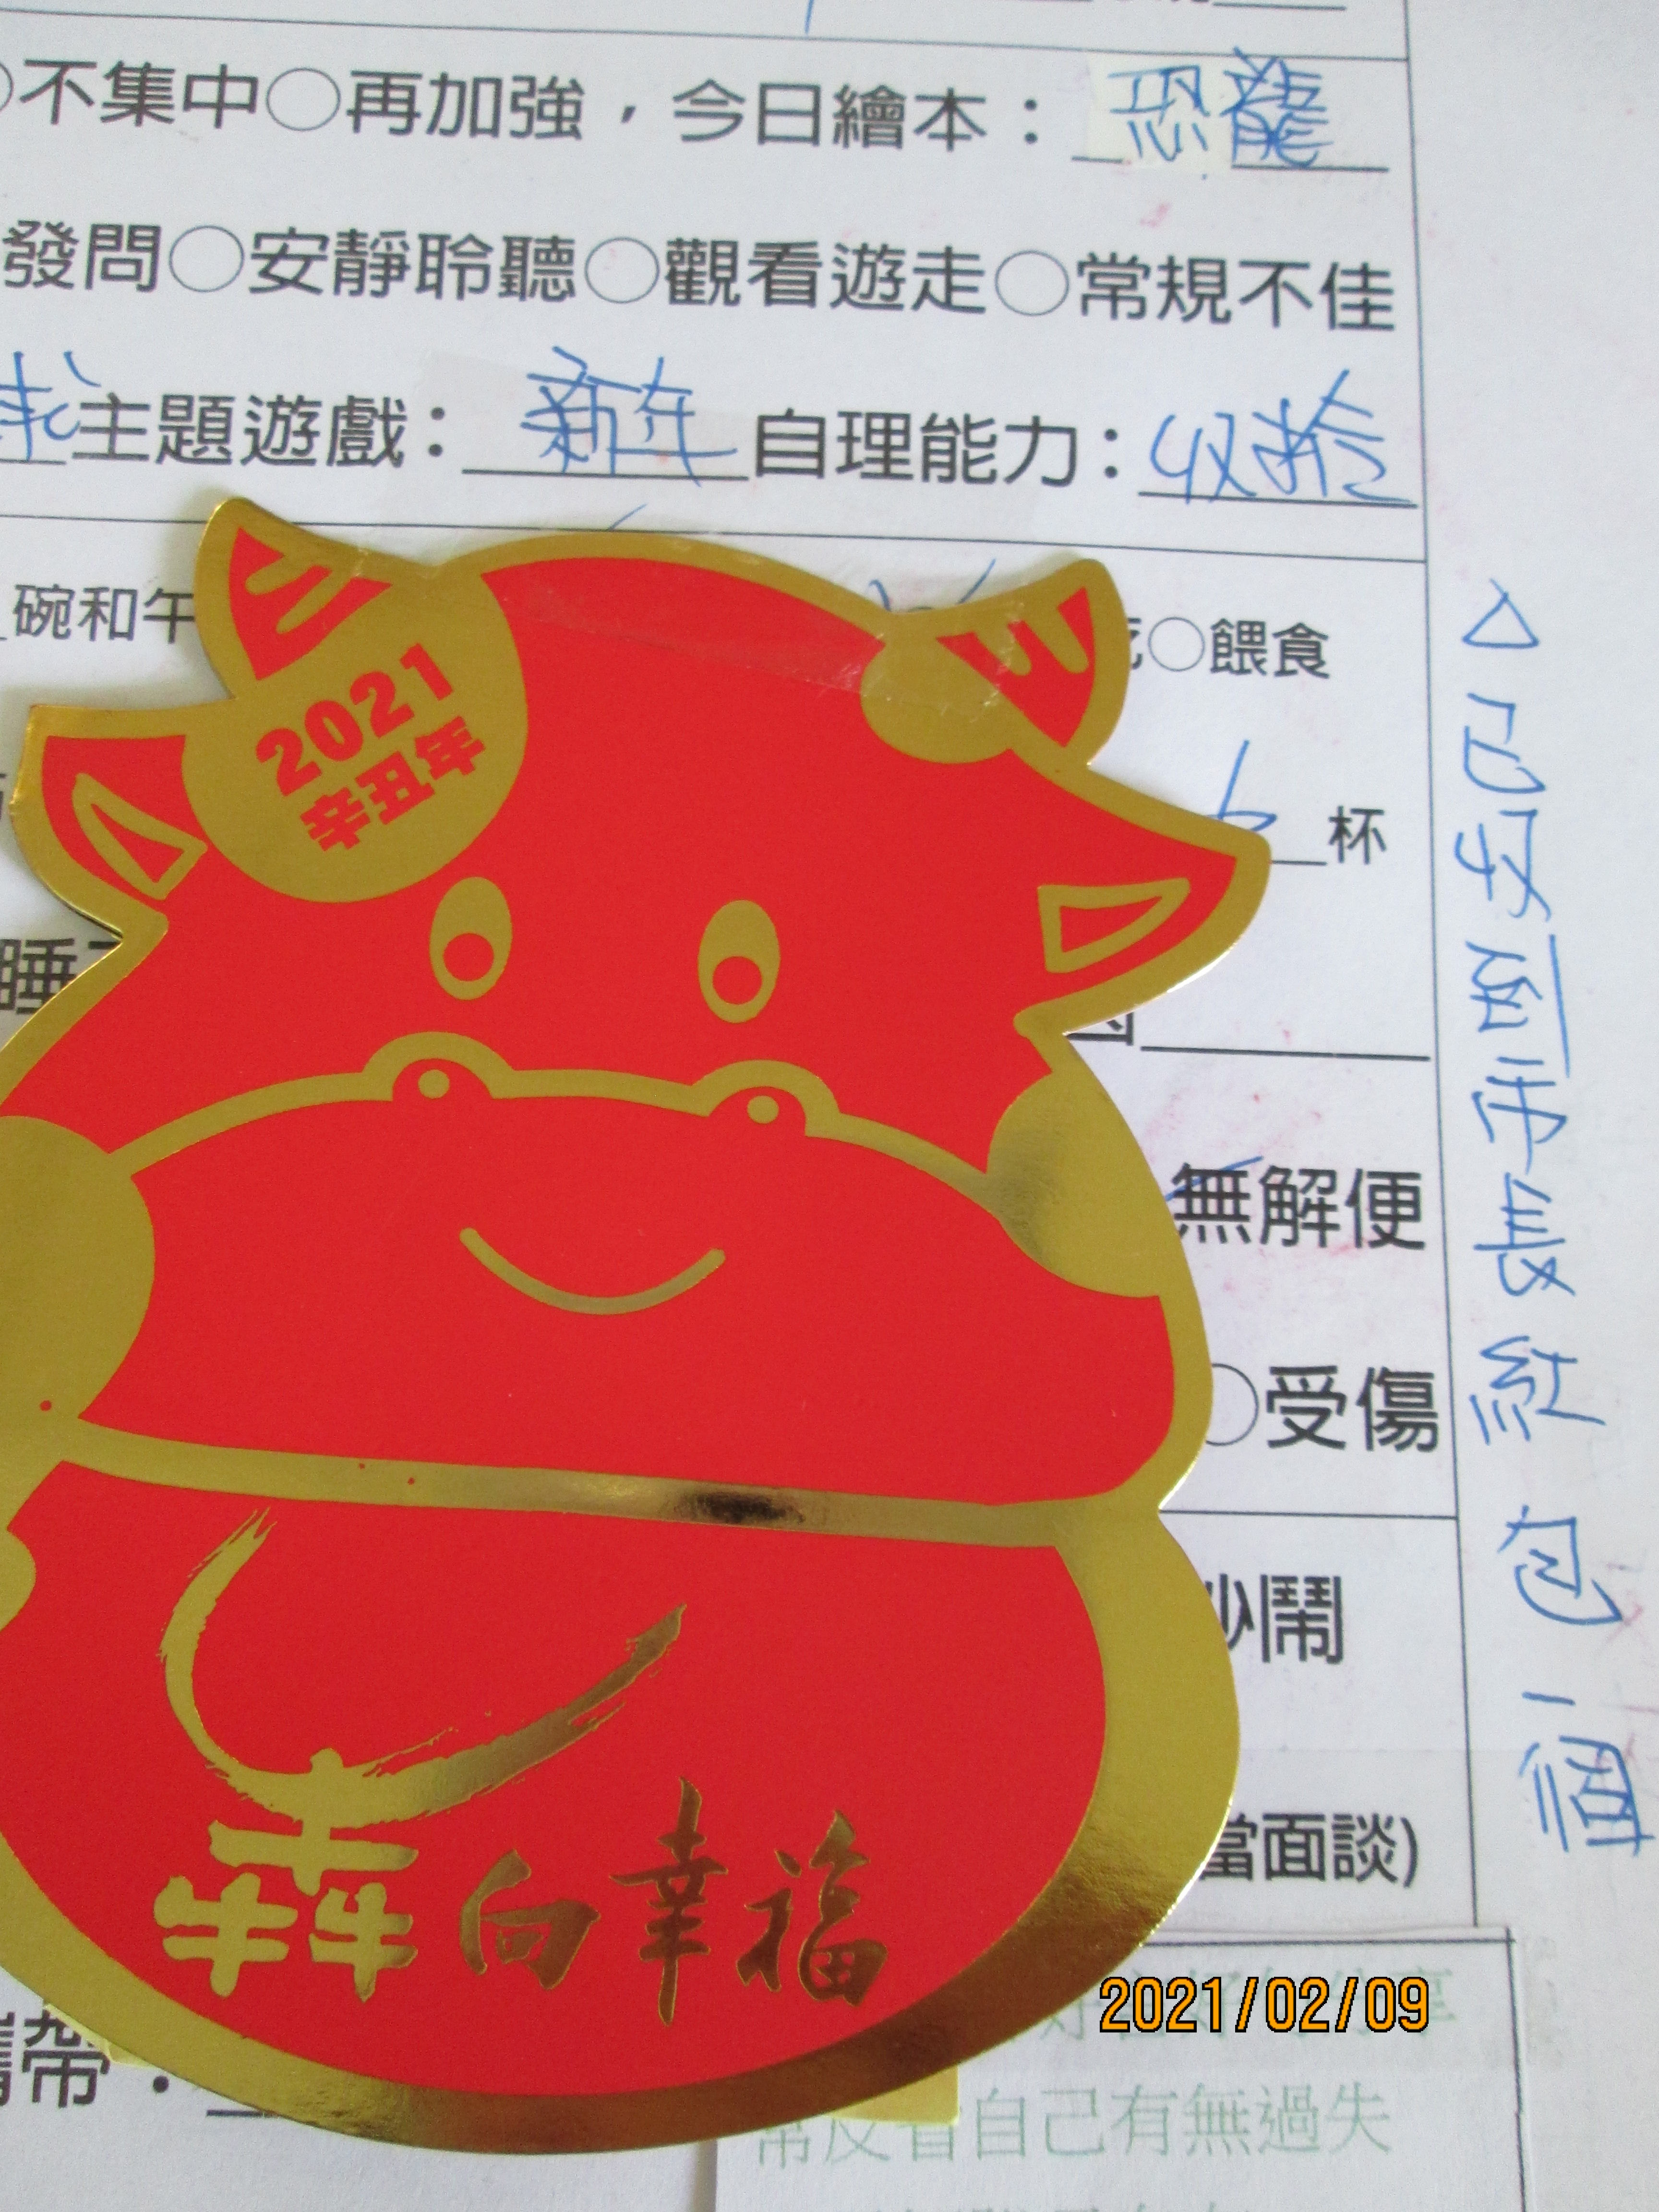 不集中○再加強，今日繪本：恐龍
發問○安靜聆聽○觀看遊走○常規不佳
主題遊戲：新年 自理能力：收拾
碗和午
○餵食
2021
辛丑年
杯
睡
無解便
○受傷
鬧
當面談)
犇向幸福
攜帶：
2021/02/09
常反省自己有無過失
△已收 市長紅包一個